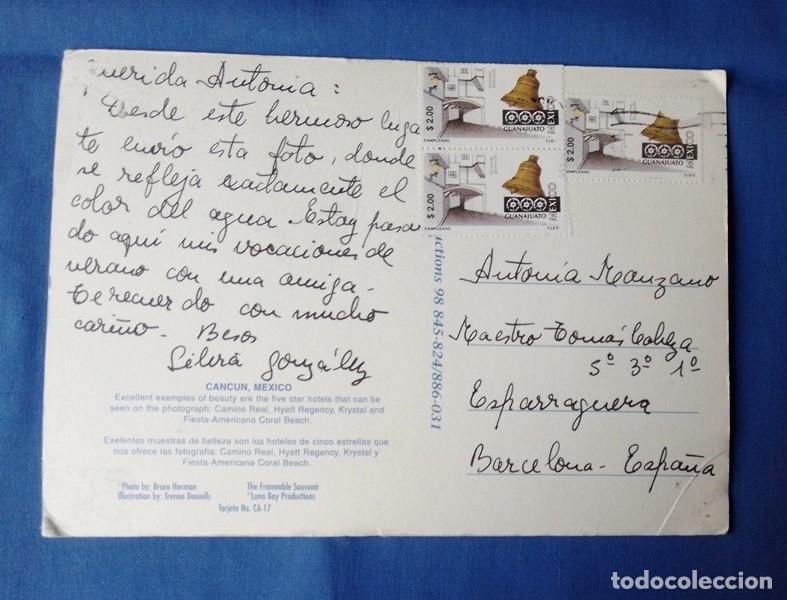 Querida Antonia:
Desde este hermoso luga
te envío esta foto, donde
se refleja exactamente el
color del agua. Estoy pasa
do aquí mis vacaciones de
verano con una amiga.
Te recuerdo con mucho
cariño. Besos
González
CANCUN, MEXICO
Excellent examples of beauty are the five star hotels that can be
seen on the photograph: Camino Real, Hyatt Regency, Krystal and
Fiesta-Americana Coral Beach.
Exelentes muestras de belleza son los hoteles de cinco estrellas que
nos ofrece las fotografia: Camino Real, Hyatt Regency, Krystal y
Fiesta-Americana Coral Beach.
Photo by: Bruce Herman
Illustration by: Trenna Daniells
The Frameable Souvenir
©Luna Bay Productions
Tarjeta No. CA-17
uctions 98 845-824/886-031
$ 2.00
GUANAJUATO
MEXICO
$ 2.00
GUANAJUATO
MEXICO
$ 2.00
GUANAJUATO
MEXICO
Antonia Manzano
Maestro Tomás
5º 3º 1º
Esparraguera
Barcelona - España
todocoleccion